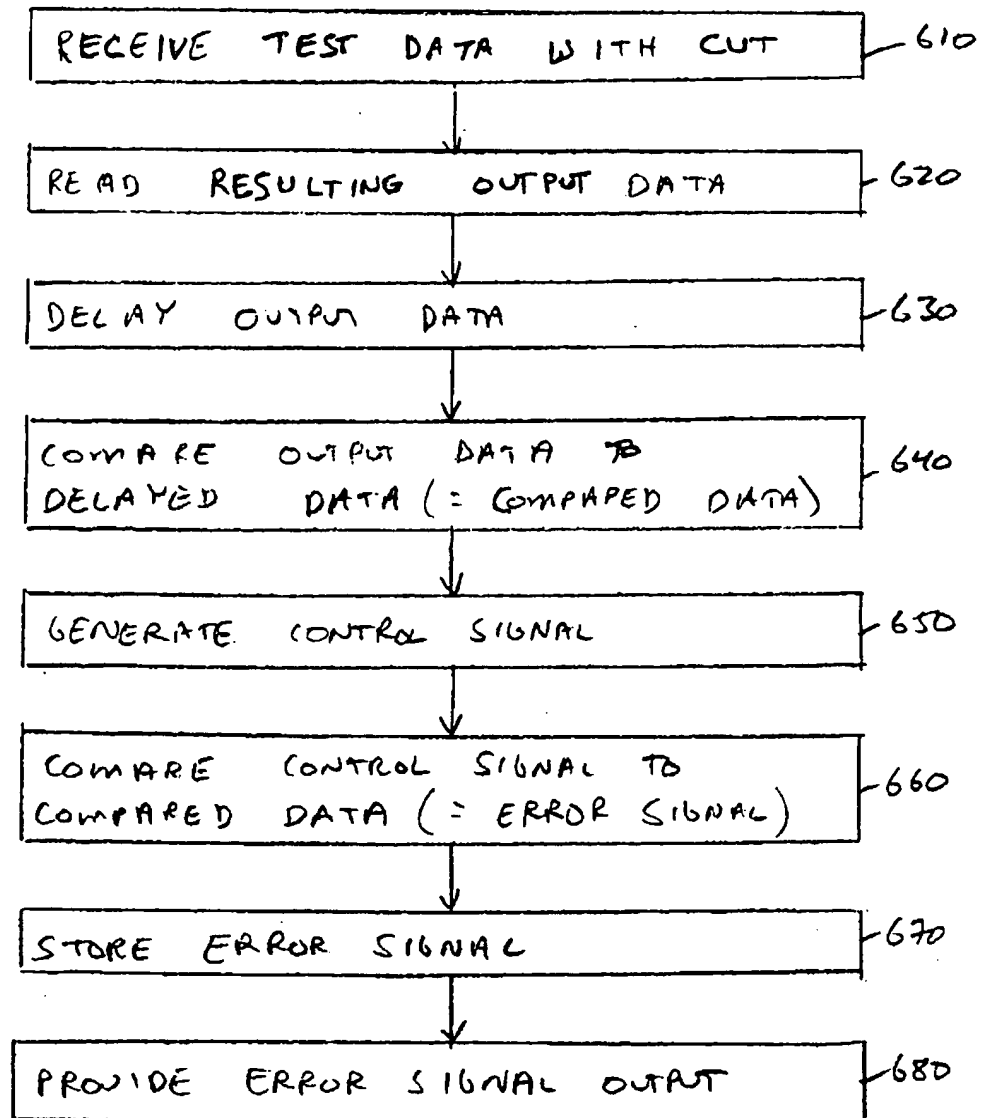 RECEIVE TEST DATA WITH CUT 610
READ RESULTING OUTPUT DATA 620
DELAY OUTPUT DATA 630
COMPARE OUTPUT DATA TO 640
DELAYED DATA (= COMPAPED DATA)
GENERATE CONTROL SIGNAL 650
COMPARE CONTROL SIGNAL TO 660
COMPARED DATA (= ERROR SIGNAL)
STORE ERROR SIGNAL 670
PROVIDE ERROR SIGNAL OUTPUT 680